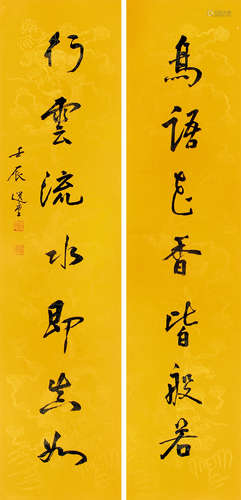 鳥語花香皆般若
行雲流水即真如
壬辰選堂